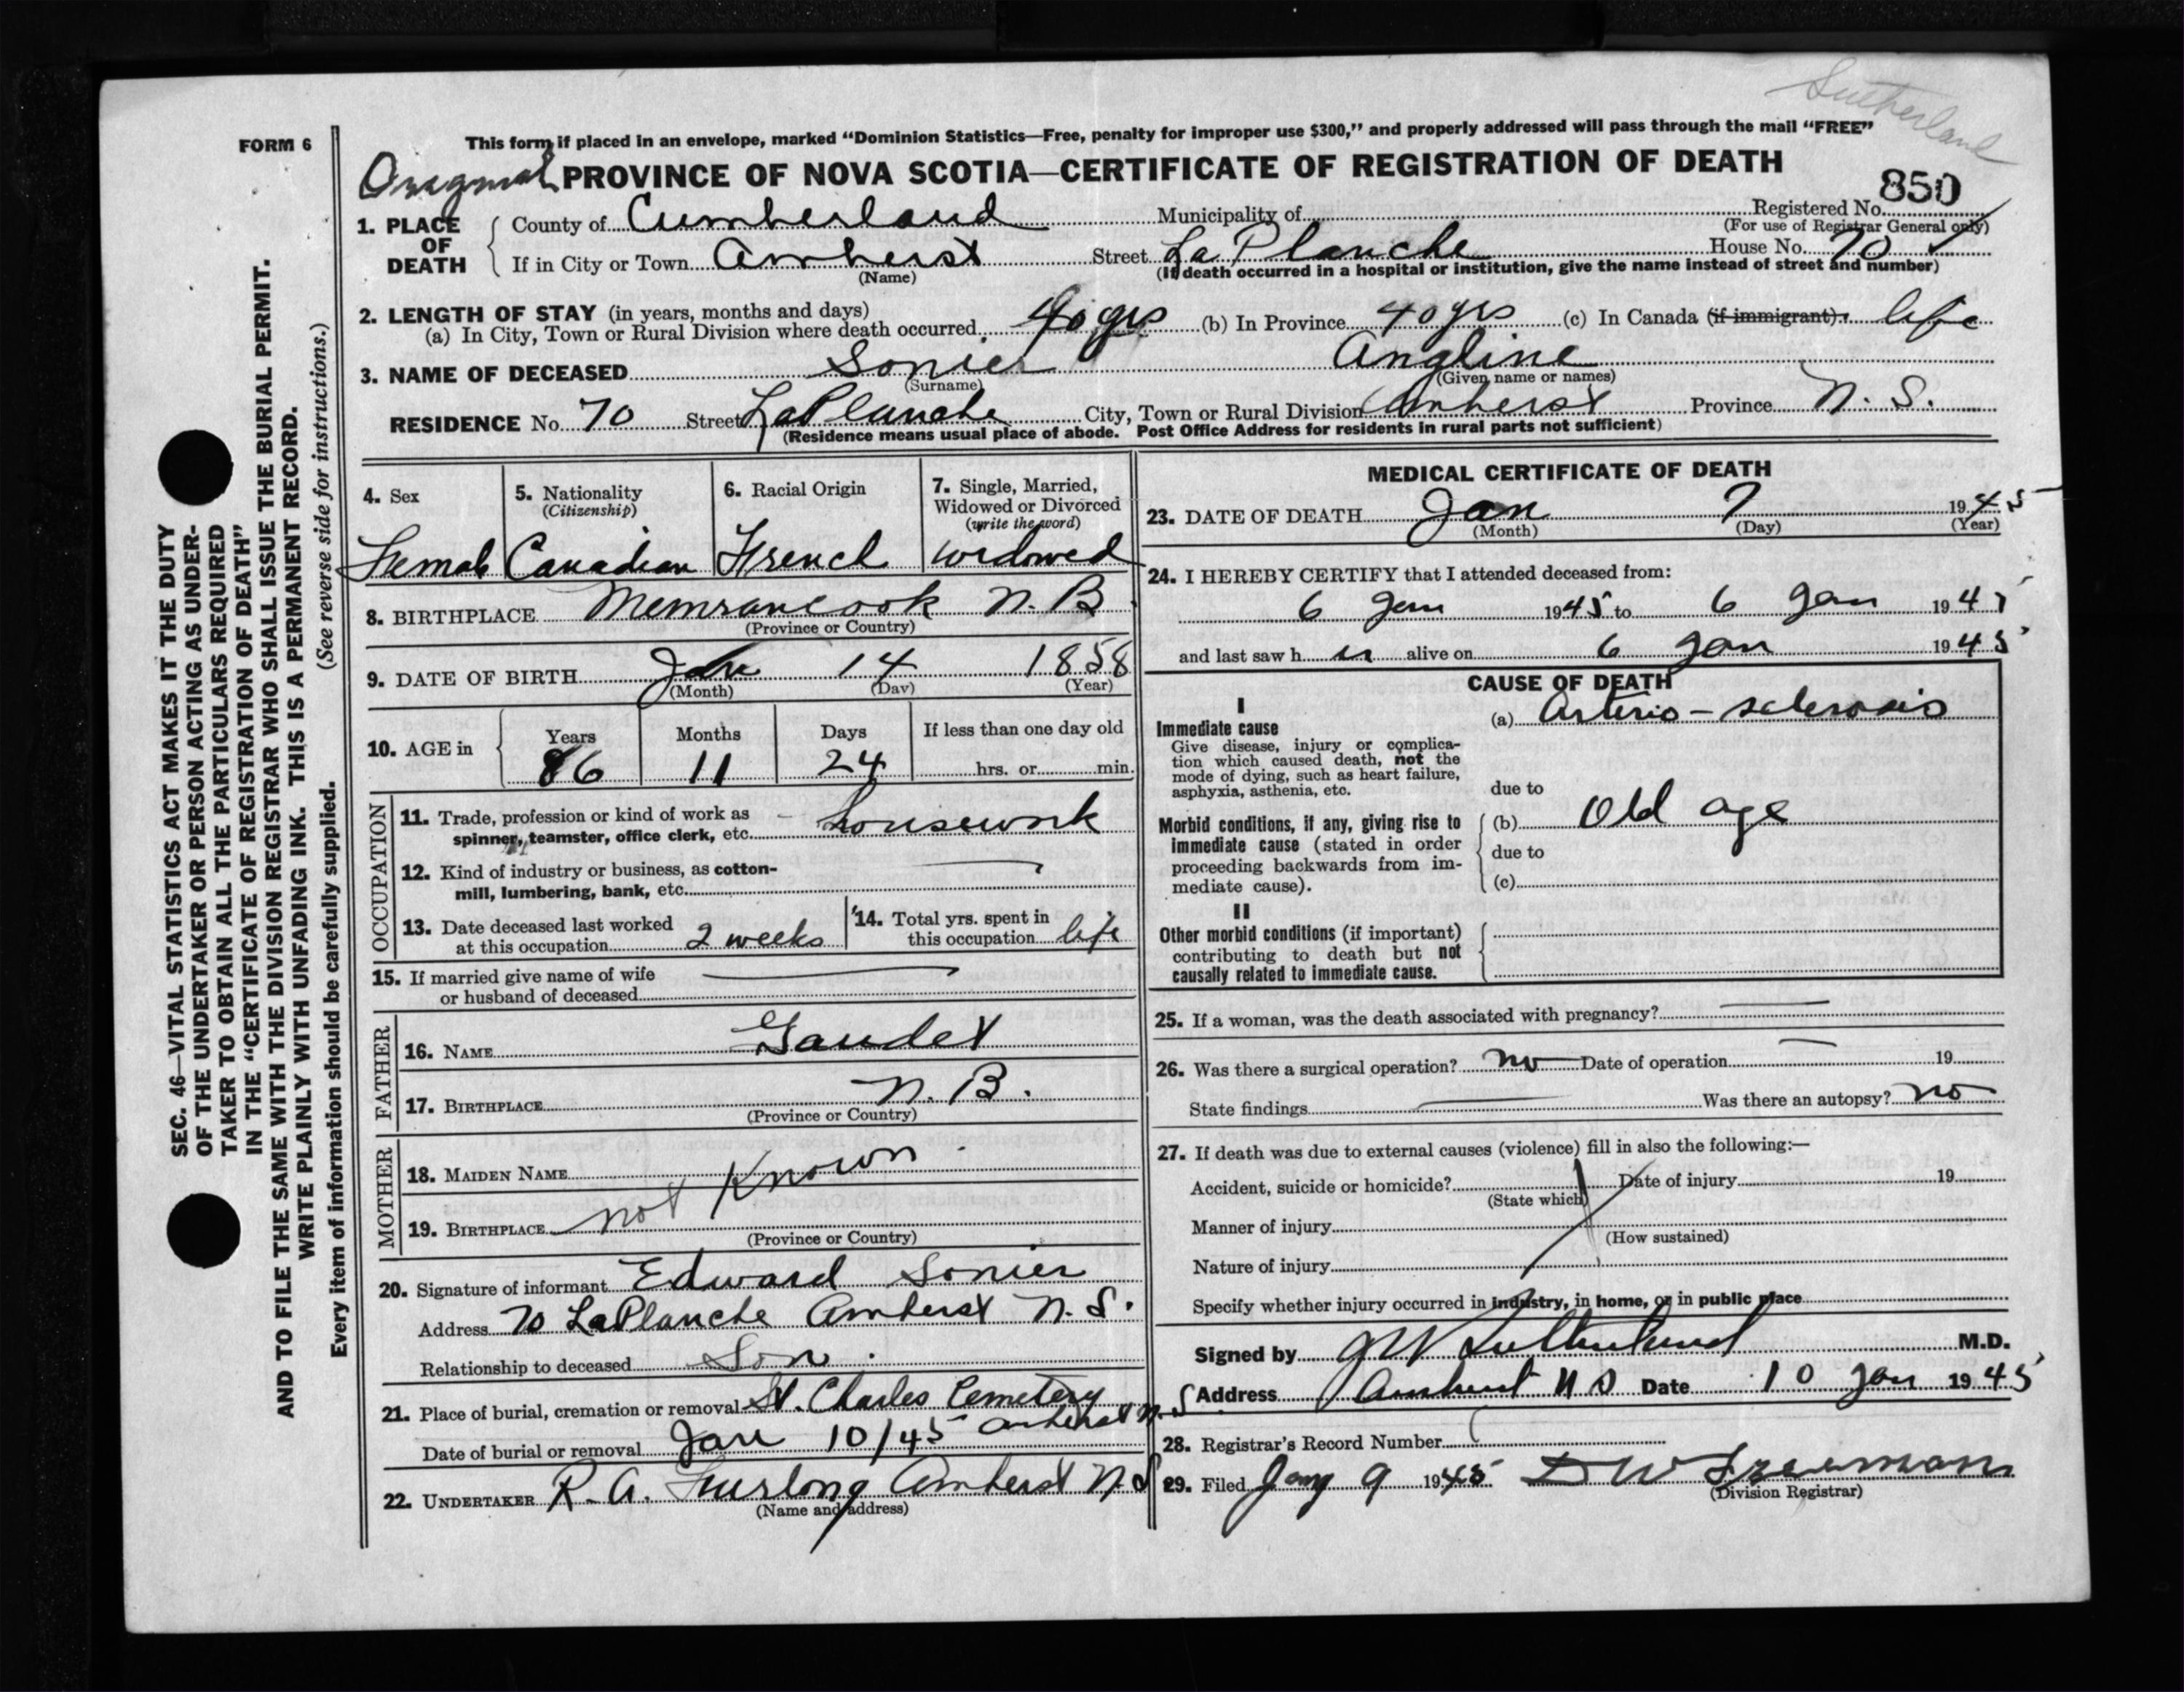 Sutherland
FORM 6
This form if placed in an envelope, marked "Dominion Statistics—Free, penalty for improper use $300," and properly addressed will pass through the mail "FREE"
Original PROVINCE OF NOVA SCOTIA—CERTIFICATE OF REGISTRATION OF DEATH
850
1. PLACE OF DEATH
County of Cumberland Municipality of Registered No.
(For use of Registrar General only)
If in City or Town Amherst Street La Planche House No. 70
(Name) (If death occurred in a hospital or institution, give the name instead of street and number)
2. LENGTH OF STAY (in years, months and days)
(a) In City, Town or Rural Division where death occurred 40 yrs (b) In Province 40 yrs (c) In Canada (if immigrant) life
3. NAME OF DECEASED Sonier Angline
(Surname) (Given name or names)
RESIDENCE No. 70 Street LaPlanche City, Town or Rural Division Amherst Province N. S.
(Residence means usual place of abode. Post Office Address for residents in rural parts not sufficient)
4. Sex
Female
5. Nationality
(Citizenship)
Canadian
6. Racial Origin
French
7. Single, Married,
Widowed or Divorced
(write the word)
widowed
8. BIRTHPLACE Memramcook N. B
(Province or Country)
9. DATE OF BIRTH Jan 14 1858
(Month) (Day) (Year)
10. AGE in
Years Months Days If less than one day old
86 11 24 hrs. or min.
OCCUPATION
11. Trade, profession or kind of work as
spinner, teamster, office clerk, etc. - housework
12. Kind of industry or business, as cotton-
mill, lumbering, bank, etc. —
13. Date deceased last worked
at this occupation 2 weeks
14. Total yrs. spent in
this occupation life
15. If married give name of wife
or husband of deceased —
FATHER
16. NAME Gaudet
17. BIRTHPLACE N. B.
(Province or Country)
MOTHER
18. MAIDEN NAME
19. BIRTHPLACE not Known
(Province or Country)
20. Signature of informant Edward Sonier
Address 70 LaPlanche Amherst N. S.
Relationship to deceased Son.
21. Place of burial, cremation or removal St. Charles Cemetery
Amherst N. S
Date of burial or removal Jan 10/45
22. UNDERTAKER R. A. Furlong Amherst N. S
(Name and address)
MEDICAL CERTIFICATE OF DEATH
23. DATE OF DEATH Jan 7 1945
(Month) (Day) (Year)
24. I HEREBY CERTIFY that I attended deceased from:
6 Jan 1945 to 6 Jan 1945
and last saw h er alive on 6 Jan 1945
CAUSE OF DEATH
I
Immediate cause
Give disease, injury or complica-
tion which caused death, not the
mode of dying, such as heart failure,
asphyxia, asthenia, etc.
(a) Arterio-sclerosis
due to
Morbid conditions, if any, giving rise to
immediate cause (stated in order
proceeding backwards from im-
mediate cause).
(b) Old age
due to
(c)
II
Other morbid conditions (if important)
contributing to death but not
causally related to immediate cause.
25. If a woman, was the death associated with pregnancy? —
26. Was there a surgical operation? no Date of operation — 19
State findings — Was there an autopsy? no
27. If death was due to external causes (violence) fill in also the following:—
Accident, suicide or homicide? Date of injury 19
(State which)
Manner of injury
(How sustained)
Nature of injury
Specify whether injury occurred in industry, in home, or in public place
Signed by J W Sutherland M.D.
Address Amherst N S Date 10 Jan 1945
28. Registrar's Record Number
29. Filed Jany 9 1945 D W Freeman
(Division Registrar)
SEC. 46—VITAL STATISTICS ACT MAKES IT THE DUTY
OF THE UNDERTAKER OR PERSON ACTING AS UNDER-
TAKER TO OBTAIN ALL THE PARTICULARS REQUIRED
IN THE "CERTIFICATE OF REGISTRATION OF DEATH"
AND TO FILE THE SAME WITH THE DIVISION REGISTRAR WHO SHALL ISSUE THE BURIAL PERMIT.
WRITE PLAINLY WITH UNFADING INK. THIS IS A PERMANENT RECORD.
Every item of information should be carefully supplied. (See reverse side for instructions.)